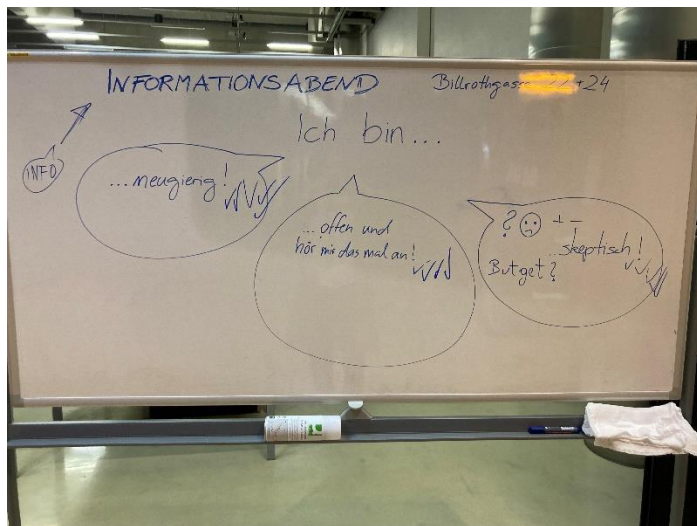 INFORMATIONSABEND
Billrothgass +24
Ich bin...
INFO
...neugierig!
...offen und
hör mir das mal an!
? + -
...skeptisch!
Butget?